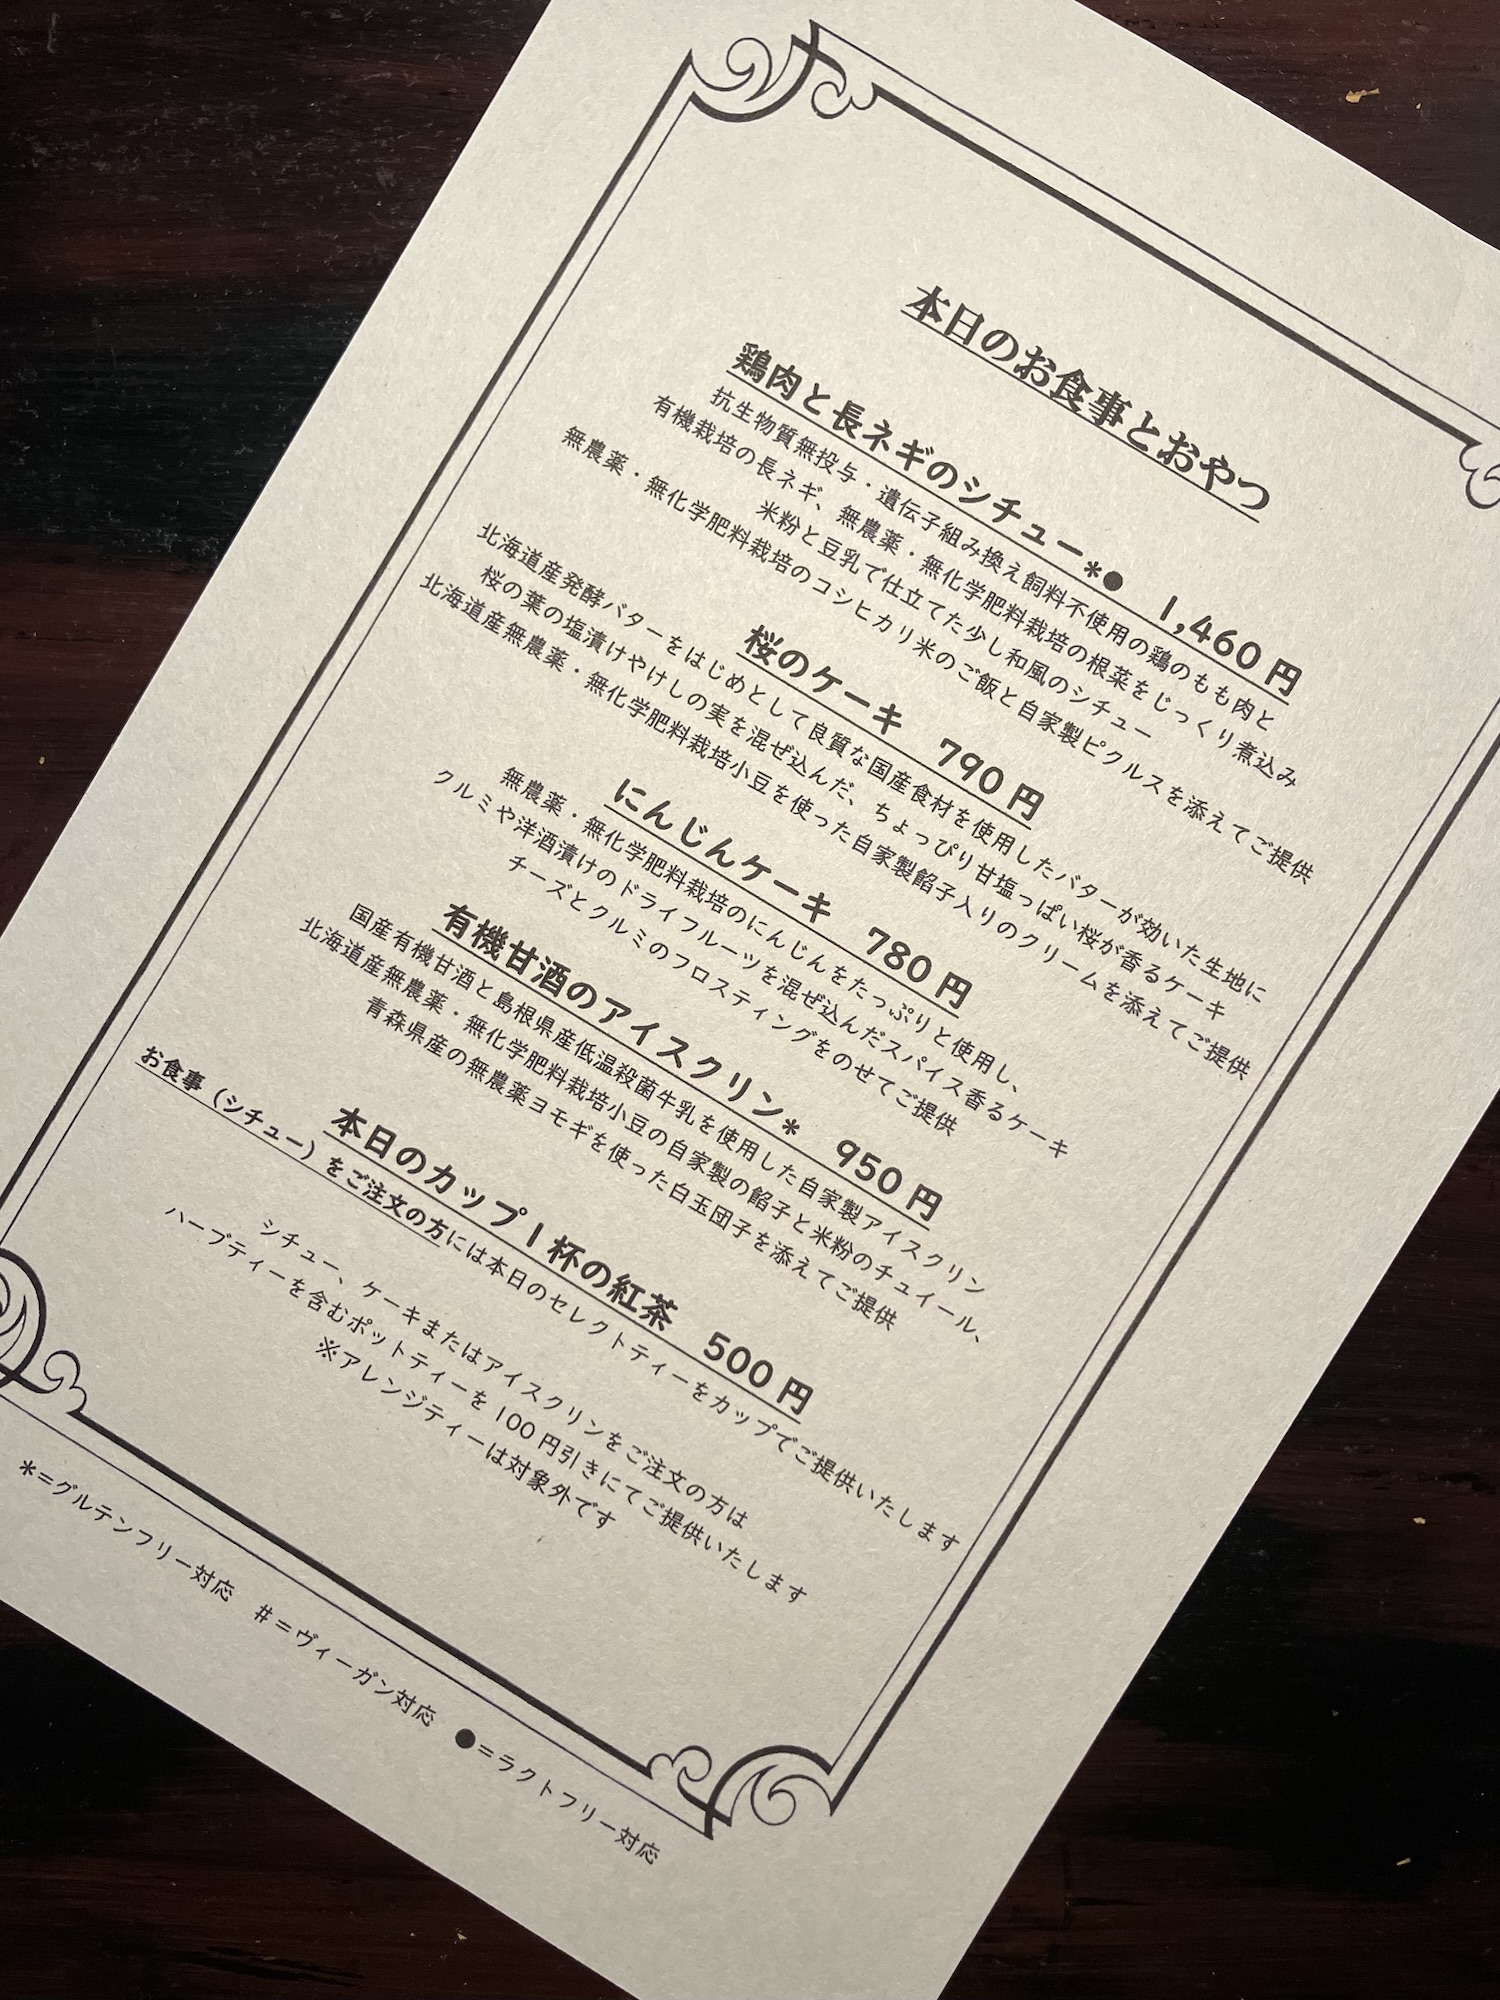 本日のお食事とおやつ
鶏肉と長ネギのシチュー*● 1,460円
抗生物質無投与・遺伝子組み換え飼料不使用の鶏のもも肉と
有機栽培の長ネギ、無農薬・無化学肥料栽培の根菜をじっくり煮込み
米粉と豆乳で仕立てた少し和風のシチュー
無農薬・無化学肥料栽培のコシヒカリ米のご飯と自家製ピクルスを添えてご提供
桜のケーキ 790円
北海道産発酵バターをはじめとして良質な国産食材を使用したバターが効いた生地に
桜の葉の塩漬けやけしの実を混ぜ込んだ、ちょっぴり甘塩っぱい桜が香るケーキ
北海道産無農薬・無化学肥料栽培小豆を使った自家製餡子入りのクリームを添えてご提供
にんじんケーキ 780円
無農薬・無化学肥料栽培のにんじんをたっぷりと使用し、
クルミや洋酒漬けのドライフルーツを混ぜ込んだスパイス香るケーキ
チーズとクルミのフロスティングをのせてご提供
有機甘酒のアイスクリン* 950円
国産有機甘酒と島根県産低温殺菌牛乳を使用した自家製アイスクリン
北海道産無農薬・無化学肥料栽培小豆の自家製の餡子と米粉のチュイール、
青森県産の無農薬ヨモギを使った白玉団子を添えてご提供
本日のカップ1杯の紅茶 500円
お食事（シチュー）をご注文の方には本日のセレクトティーをカップでご提供いたします
シチュー、ケーキまたはアイスクリンをご注文の方は
ハーブティーを含むポットティーを100円引きにてご提供いたします
※アレンジティーは対象外です
*=グルテンフリー対応 #=ヴィーガン対応 ●=ラクトフリー対応